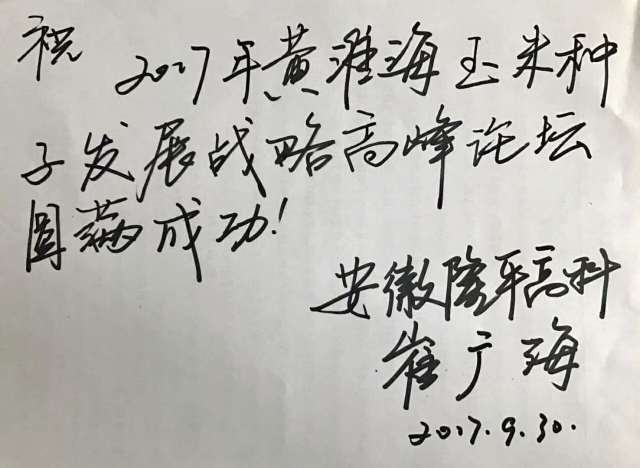 祝 2017年黄淮海玉米种
子发展战略高峰论坛
圆满成功!
安徽隆平高科
崔广海
2017.9.30.